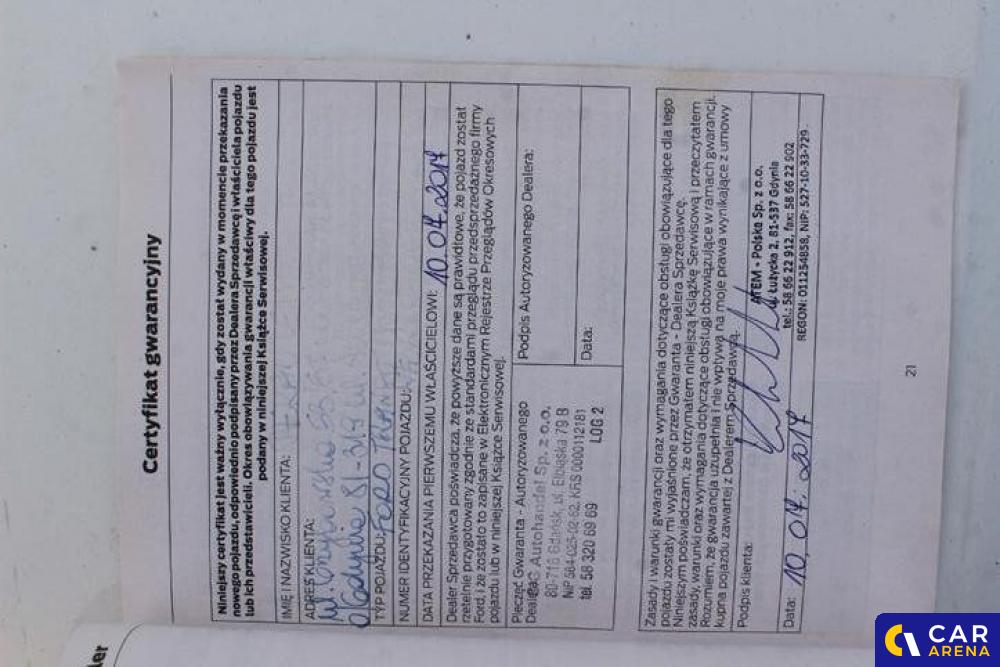 Certyfikat gwarancyjny
Niniejszy certyfikat jest ważny wyłącznie, gdy został wydany w momencie przekazania
nowego pojazdu, odpowiednio podpisany przez Dealera Sprzedawcę i właściciela pojazdu
lub ich przedstawicieli. Okres obowiązywania gwarancji właściwy dla tego pojazdu jest
podany w niniejszej Książce Serwisowej.
IMIĘ I NAZWISKO KLIENTA:
ADRES KLIENTA:
Gdynia 81-319
TYP POJAZDU: FORD
NUMER IDENTYFIKACYJNY POJAZDU:
DATA PRZEKAZANIA PIERWSZEMU WŁAŚCICIELOWI: 10.07.2017
Dealer Sprzedawca poświadcza, że powyższe dane są prawidłowe, że pojazd został
rzetelnie przygotowany zgodnie ze standardami przeglądu przedsprzedażnego firmy
Ford i że zostało to zapisane w Elektronicznym Rejestrze Przeglądów Okresowych
pojazdu lub w niniejszej Książce Serwisowej.
Pieczęć Gwaranta - Autoryzowanego
Dealera:
Autohandel Sp. z o.o.
80-718 Gdańsk, ul. Elbląska 79 B
NIP 584-025-02-62, KRS 0000112181
tel. 58 320 69 69 LOG 2
Podpis Autoryzowanego Dealera:
Data:
Zasady i warunki gwarancji oraz wymagania dotyczące obsługi obowiązujące dla tego
pojazdu zostały mi wyjaśnione przez Gwaranta - Dealera Sprzedawcę.
Niniejszym poświadczam, że otrzymałem niniejszą Książkę Serwisową i przeczytałem
zasady, warunki oraz wymagania dotyczące obsługi obowiązujące w ramach gwarancji.
Rozumiem, że gwarancja uzupełnia i nie wpływa na moje prawa wynikające z umowy
kupna pojazdu zawartej z Dealerem Sprzedawcą.
Podpis klienta:
ATEM - Polska Sp. z o.o.
ul. Łużycka 2, 81-537 Gdynia
tel.: 58 66 22 912, fax: 58 66 22 902
REGON: 011254858, NIP: 527-10-33-729
Data: 10.07.2017
21
CAR
ARENA